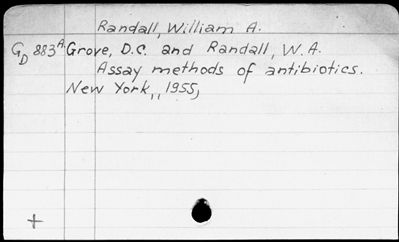 Randall, William A.
GD 883A. Grove, D.C. and Randall, W.A.
Assay methods of antibiotics.
New York,, 1955,
+